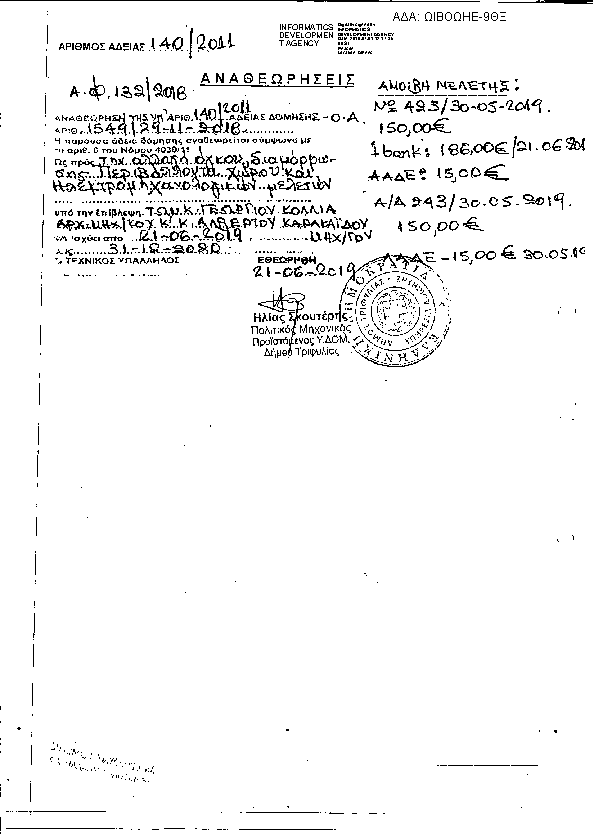 ΑΔΑ: ΩΙΒΟΩΗΕ-9ΘΞ
INFORMATICS DEVELOPMENT AGENCY
ΑΡΙΘΜΟΣ ΑΔΕΙΑΣ 140/2011
ΑΝΑΘΕΩΡΗΣΕΙΣ
Α.Φ. 132/2018
ΑΝΑΘΕΩΡΗΣΗ ΤΗΣ ΥΠ' ΑΡΙΘ. 140/2011 ΑΔΕΙΑΣ ΔΟΜΗΣΗΣ - Ο.Α.
ΑΡΙΘ. 1549/29-11-2018
Η παρούσα άδεια δόμησης αναθεωρείται σύμφωνα με
του Νόμου 4030/11
Ως προς Την αλλαγή όγκου, διαμόρφω-
σης Περιβάλλοντα χώρου και
Ηλεκτρομηχανολογικών μελετών
υπό την επίβλεψη ΤΩΝ Κ. ΓΕΩΡΓΙΟΥ ΚΟΛΛΙΑ
ΑΡΧ. ΜΗΧ/ΚΟΥ Κ. Κ. ΑΛΒΕΡΤΟΥ ΚΑΡΑΚΑΪΔΟΥ
ισχύει από 21-06-2019 ΜΗΧ/ΓΟΥ
31-12-2020
ΤΕΧΝΙΚΟΣ ΥΠΑΛΛΗΛΟΣ
ΕΘΕΩΡΗΘΗ
21-06-2019
Ηλίας Σκουτέρης
Πολιτικός Μηχανικός
Προϊστάμενος Υ.ΔΟΜ.
Δήμου Τριφυλίας
ΑΜΟΙΒΗ ΜΕΛΕΤΗΣ:
Νº 423/30-05-2019.
150,00€
1bank: 186,00€/21.06
ΑΑΔΕ: 15,00€
Α/Δ 243/30.05.2019.
150,00€
ΑΑΔΕ - 15,00€ 30.05